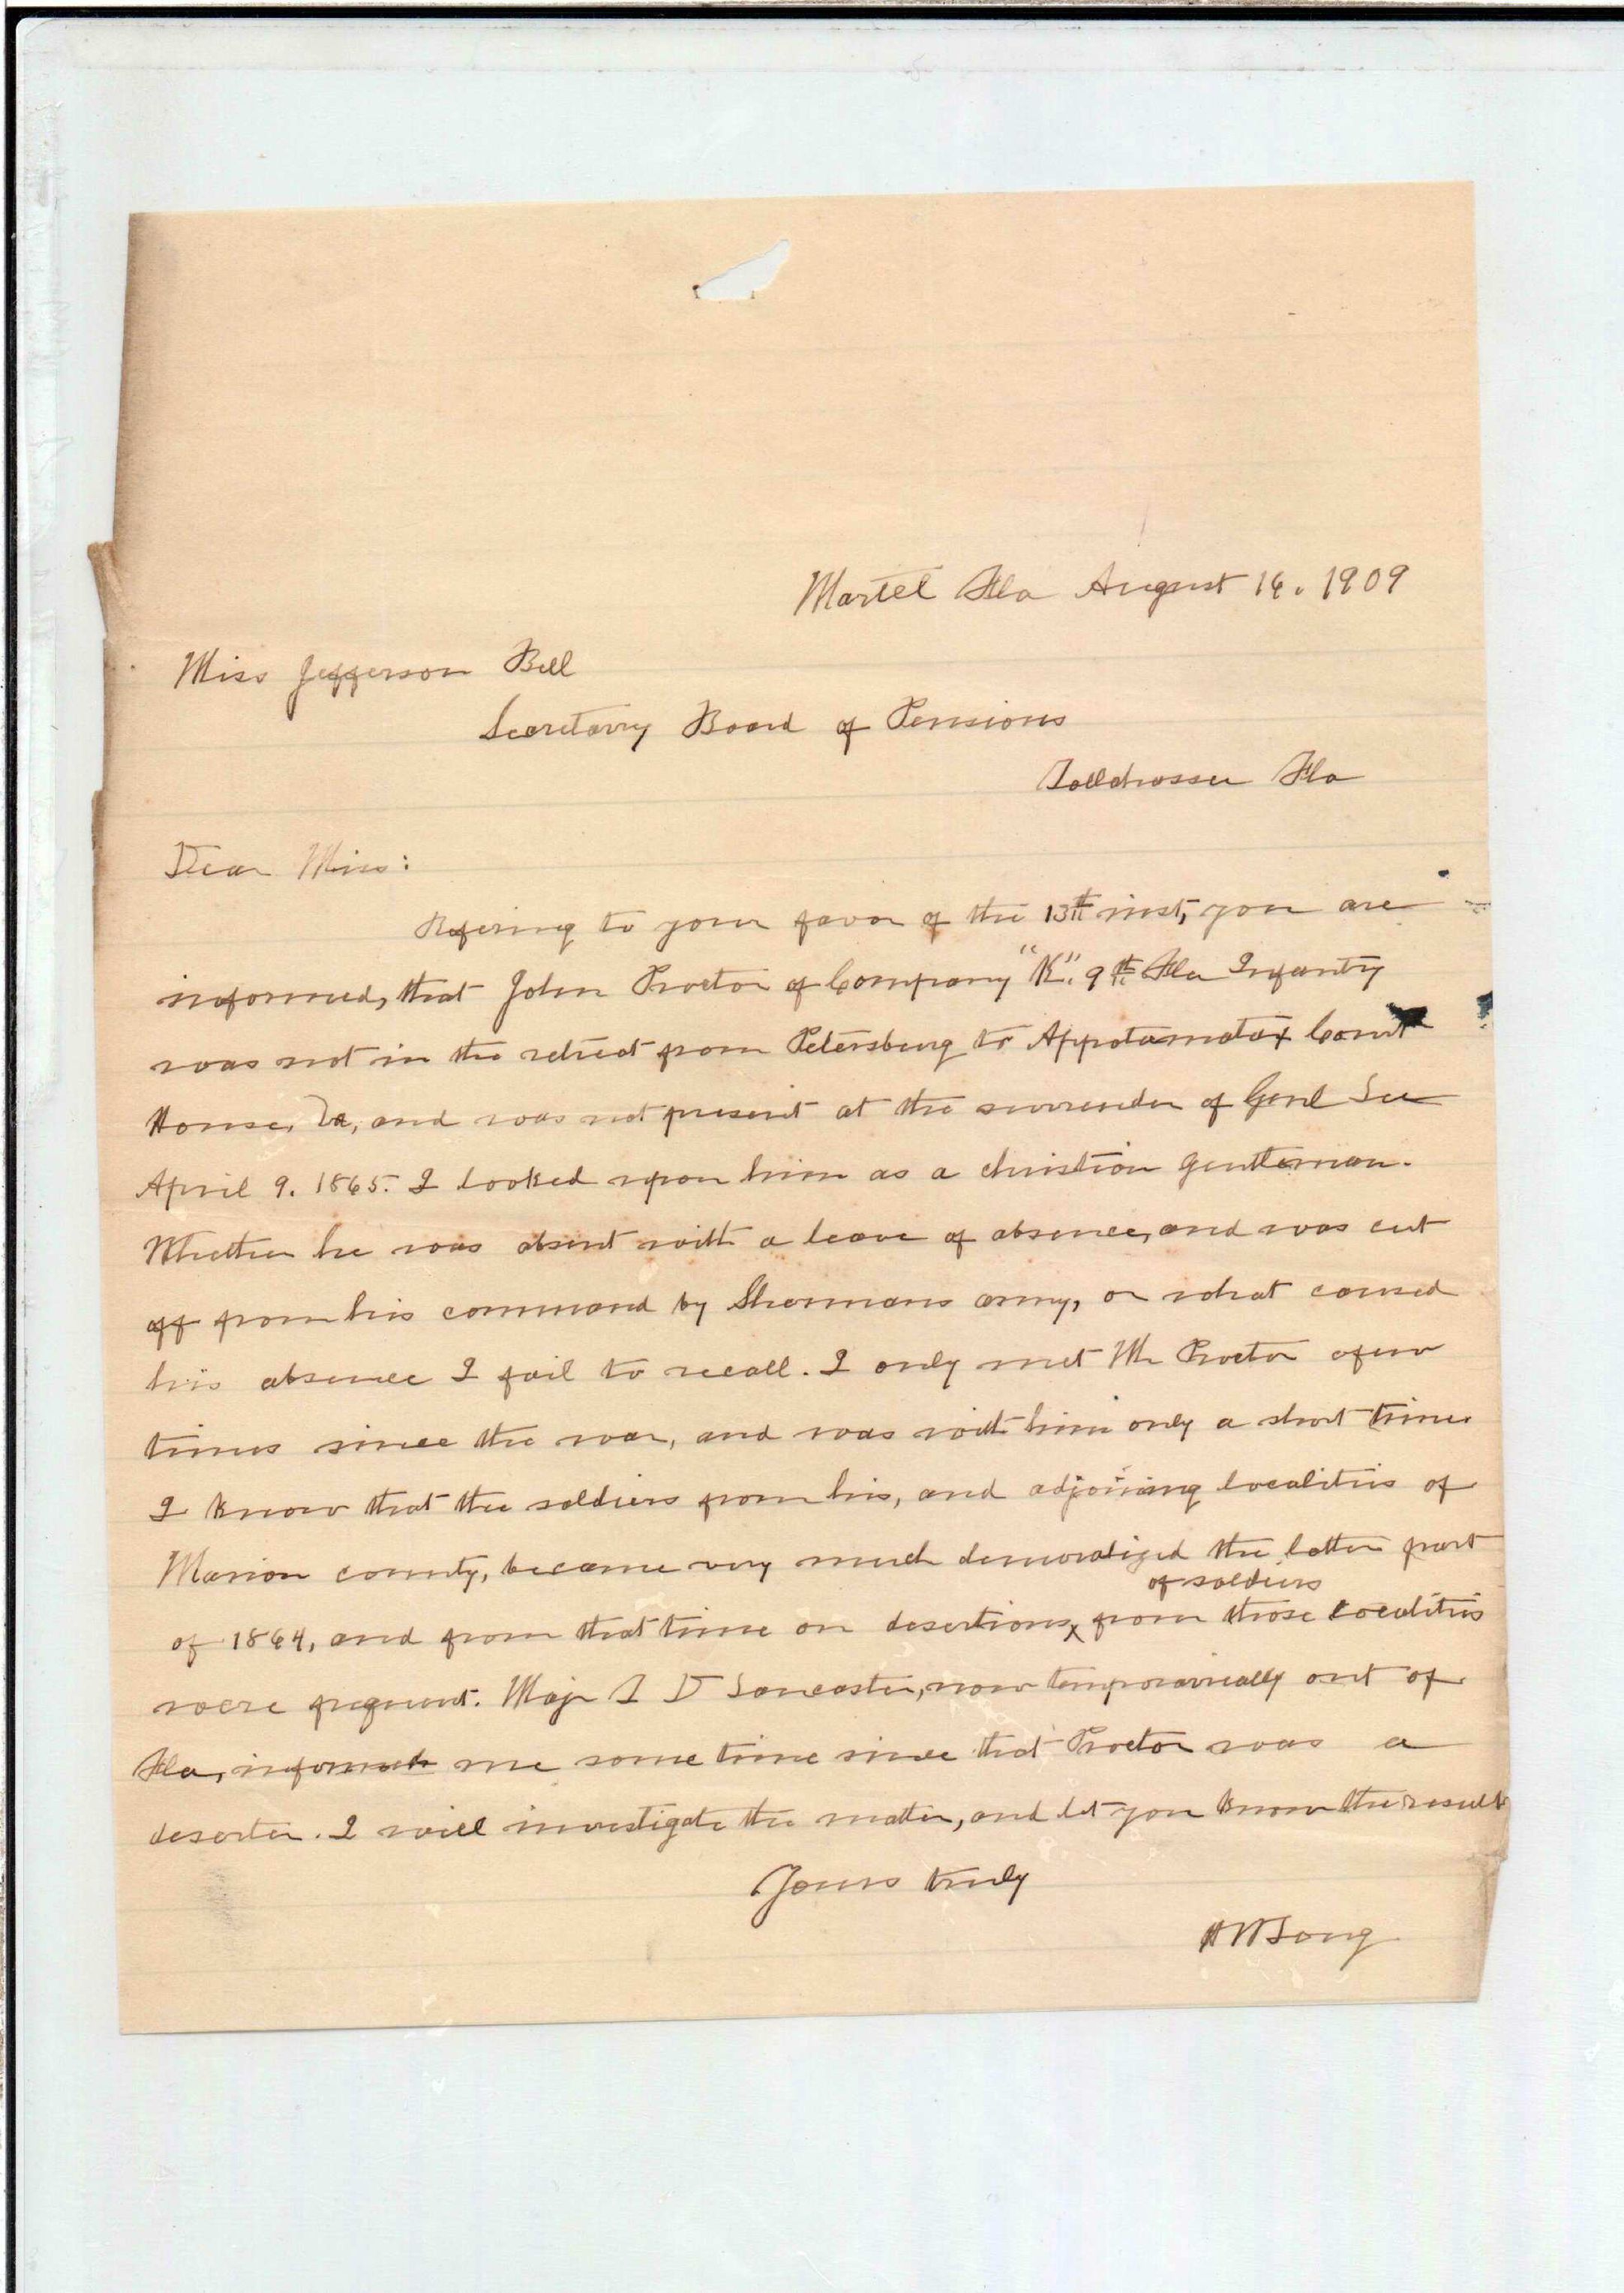 Martel Fla August 16. 1909
Miss Jefferson Bell
Secretarry Board of Pensions
Tallahassee Fla
Dear Miss:
Refering to your favor of the 13th inst, you are
informed, that John Proctor of Company "K". 9th Fla Infantry
was not in the retreat from Petersburg to Appotamatax Court
House, Va, and was not present at the surrender of Genl Lee
April 9. 1865. I looked upon him as a christian gentleman.
Whether he was absent with a leave of absence, and was cut
off from his command by Shermans army, or what caused
his absence I fail to recall. I only met Mr Proctor afew
times since the war, and was with him only a short time.
I know that the soldiers from his, and adjoining localities of
Marion county, became very much demoralized the latter part
of soldiers
of 1864, and from that time on desertions x from those localities
were frequent. Maj I D Lancaster, now temporarrially out of
Fla, me some time since that Proctor was a
deserter. I will investigate the matter, and let you know the result
Yours truly
HW Long